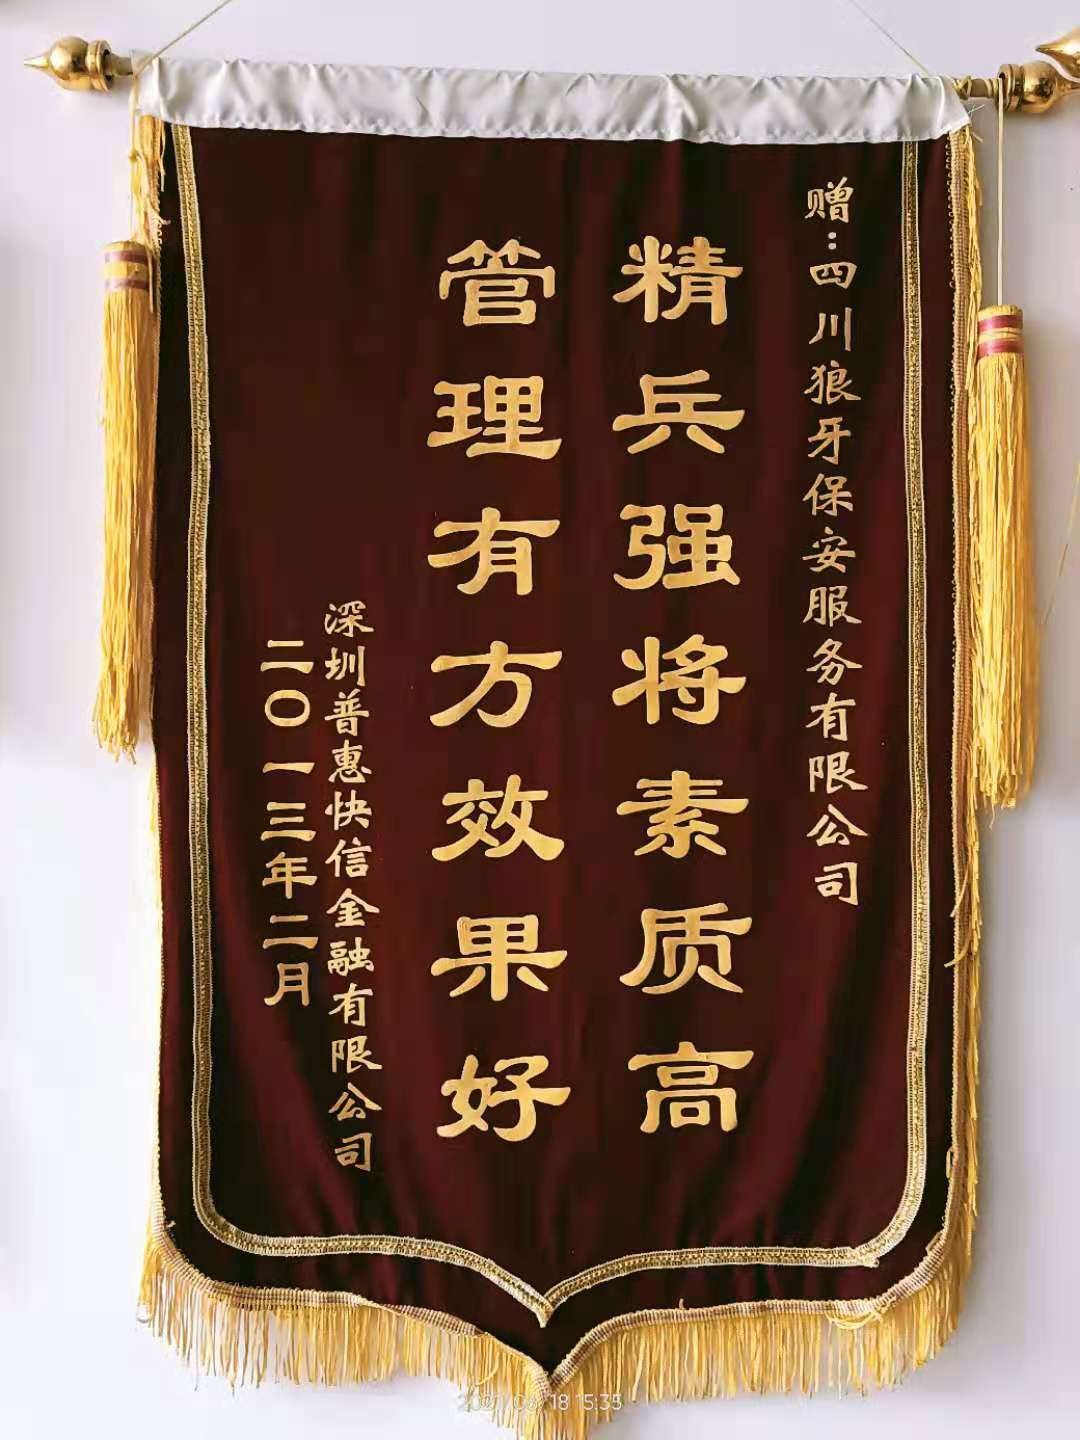 赠：四川狼牙保安服务有限公司
精兵强将素质高
管理有方效果好
深圳普惠快信金融有限公司
二〇一三年二月
2021/06/18 15:35